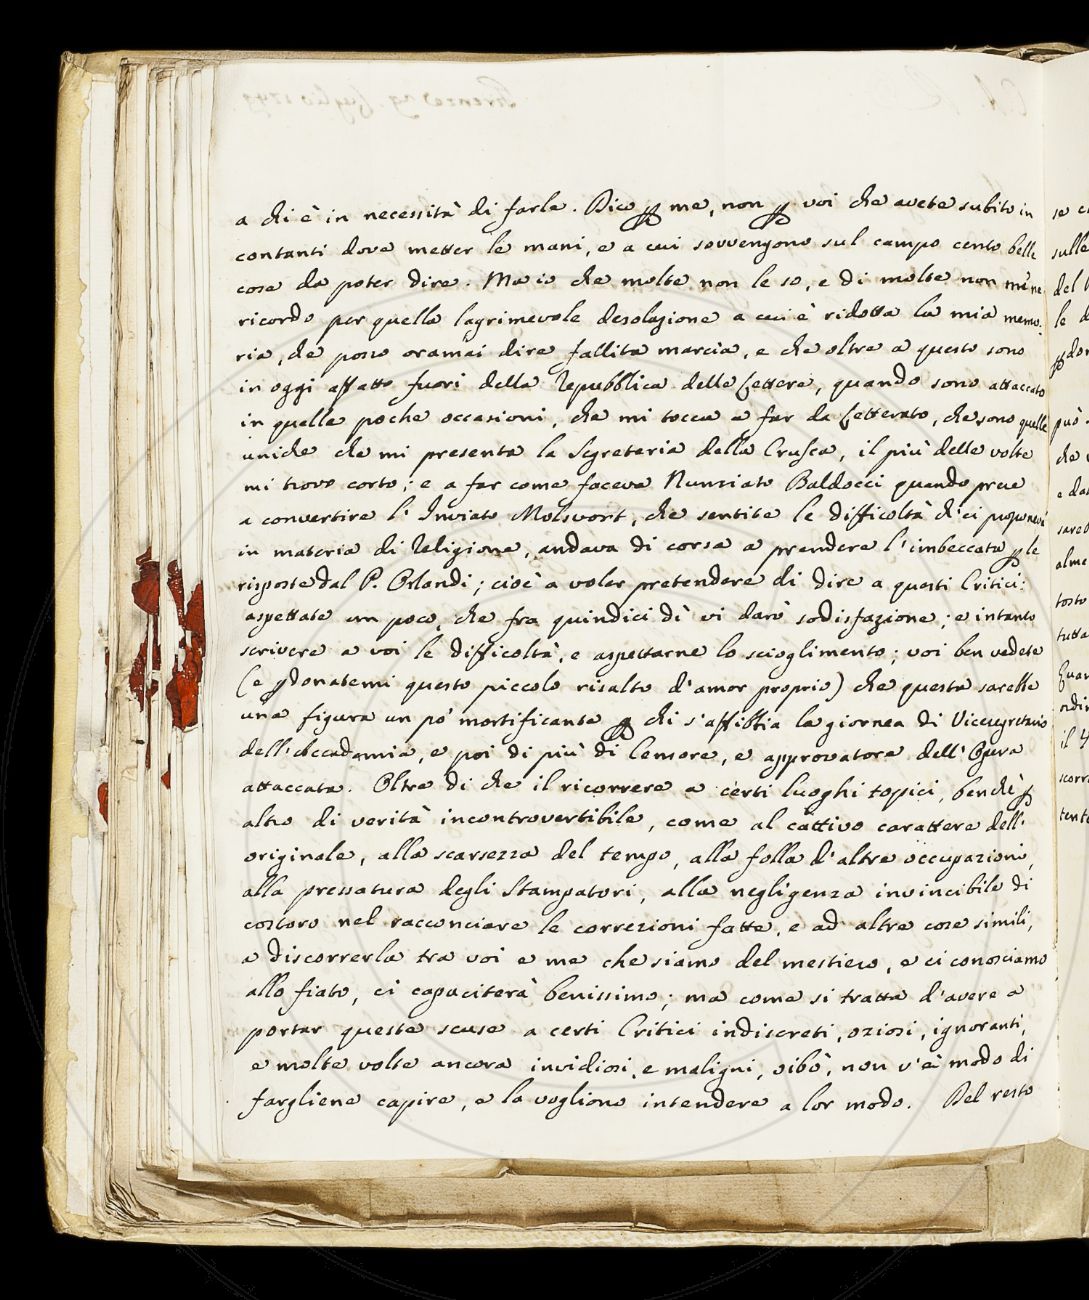 a chi è in necessità di farle. Dico ꝑ me, non ꝑ voi che avete subito in
contanti dove metter le mani, e a cui sovvengono sul campo cento belle
cose da poter dire. Ma io che molte non le so, e di molte non me ne
ricordo per quella lagrimevole desolazione a cui è ridotta la mia memo-
ria, che posso oramai dire fallita marcia, e che oltre a questo sono
in oggi affatto fuori della Repubblica delle Lettere, quando sono attaccato
in quelle poche occasioni, che mi tocca a far da Letterato, che sono quelle
uniche che mi presenta la Segreteria della Crusca, il più delle volte
mi trovo corto; e a far come faceva Nunziato Baldocci quando prese
a convertire l'Inviato Molsvort, che sentite le difficoltà ch'ei proponeva
in materia di Religione, andava di corsa a prendere l'imbeccata ꝑ le
risposte dal P. Orlandi; cioè a voler pretendere di dire a questi Critici:
aspettate un poco, che fra quindici dì vi darò sodisfazione; e intanto
scrivere a voi le difficoltà, e aspettarne lo scioglimento; voi ben vedete
(e ꝑdonatemi questo piccolo risalto d'amor proprio) che questa sarebbe
una figura un po' mortificante ꝑ chi s'affibbia la giornea di Vicesegretario
dell'Accademia, e poi di più di Censore, e approvatore dell'Opera
attaccata. Oltre di che il ricorrere a certi luoghi topici, benchè ꝑ
altro di verità incontrovertibile, come al cattivo carattere dell'
originale, alla scarsezza del tempo, alla folla d'altre occupazioni,
alla pressatura degli Stampatori, alla negligenza invincibile di
costoro nel racconciare le correzioni fatte, e ad altre cose simili,
a discorrerla tra voi e me che siamo del mestiero, e ci conosciamo
allo fiato, ci capaciterà benissimo; ma come si tratta d'avere a
portar queste scuse a certi Critici indiscreti, oziosi, ignoranti,
e molte volte ancora invidiosi, e maligni, oibò, non v'è modo di
fargliene capire, e la vogliono intendere a lor modo. Del resto